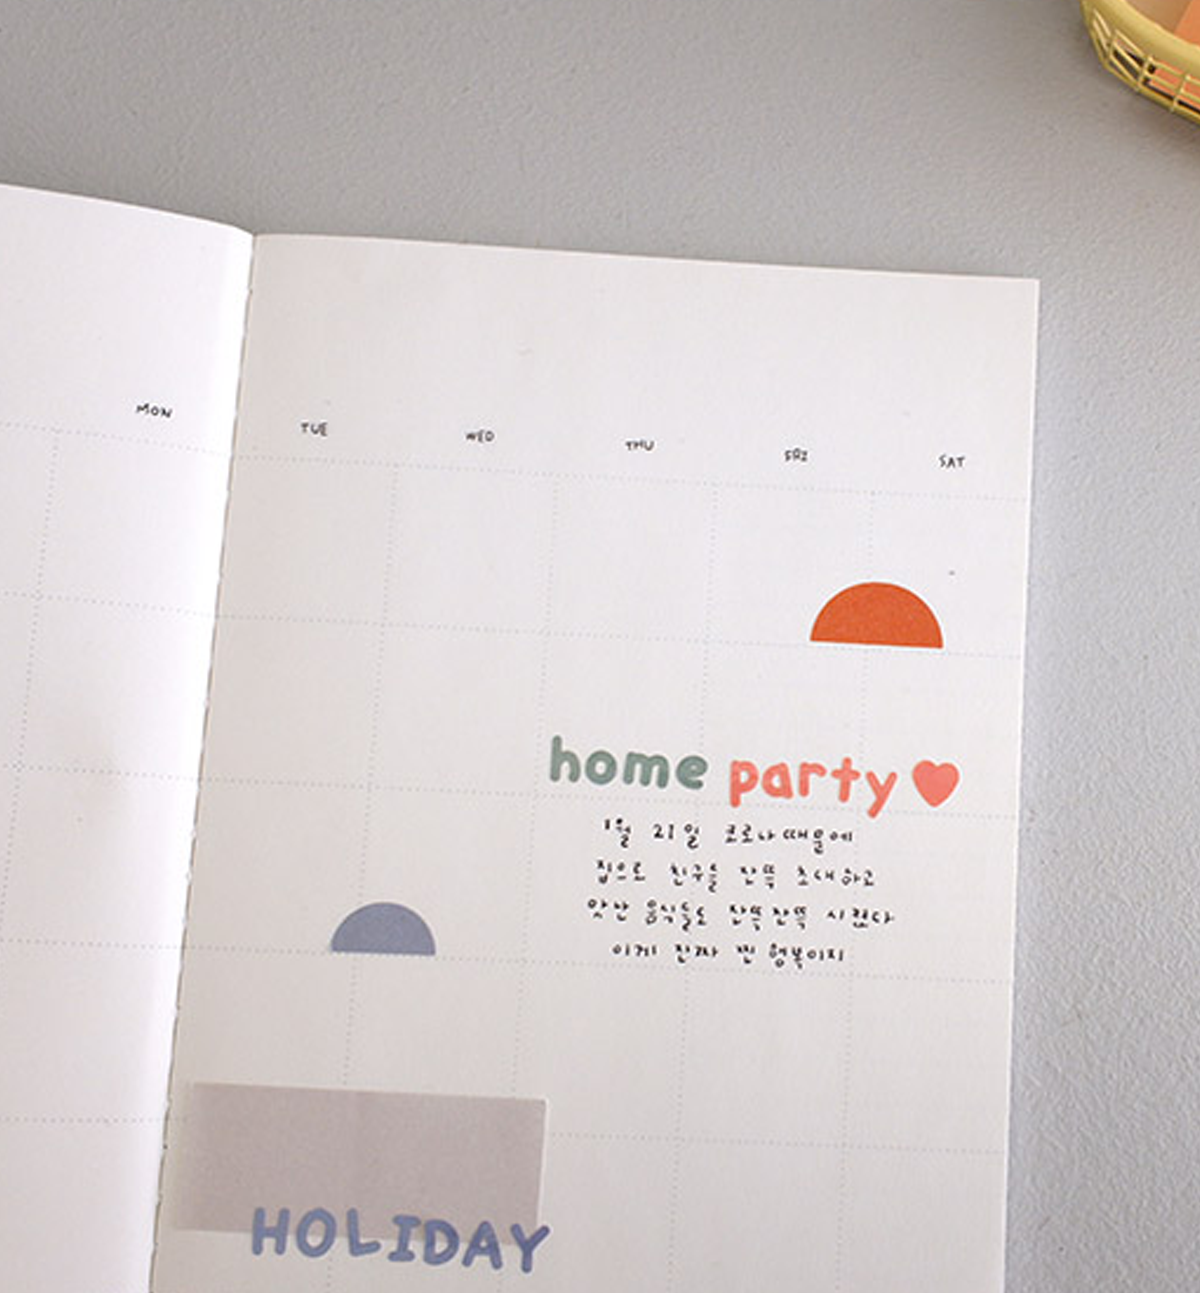 MON TUE WED THU FRI SAT
home party
1월 21일 코로나때문에
집으로 친구들 잔뜩 초대하고
맛난 음식들도 잔뜩잔뜩 시켰다
이게 진짜 찐 행복이지
HOLIDAY